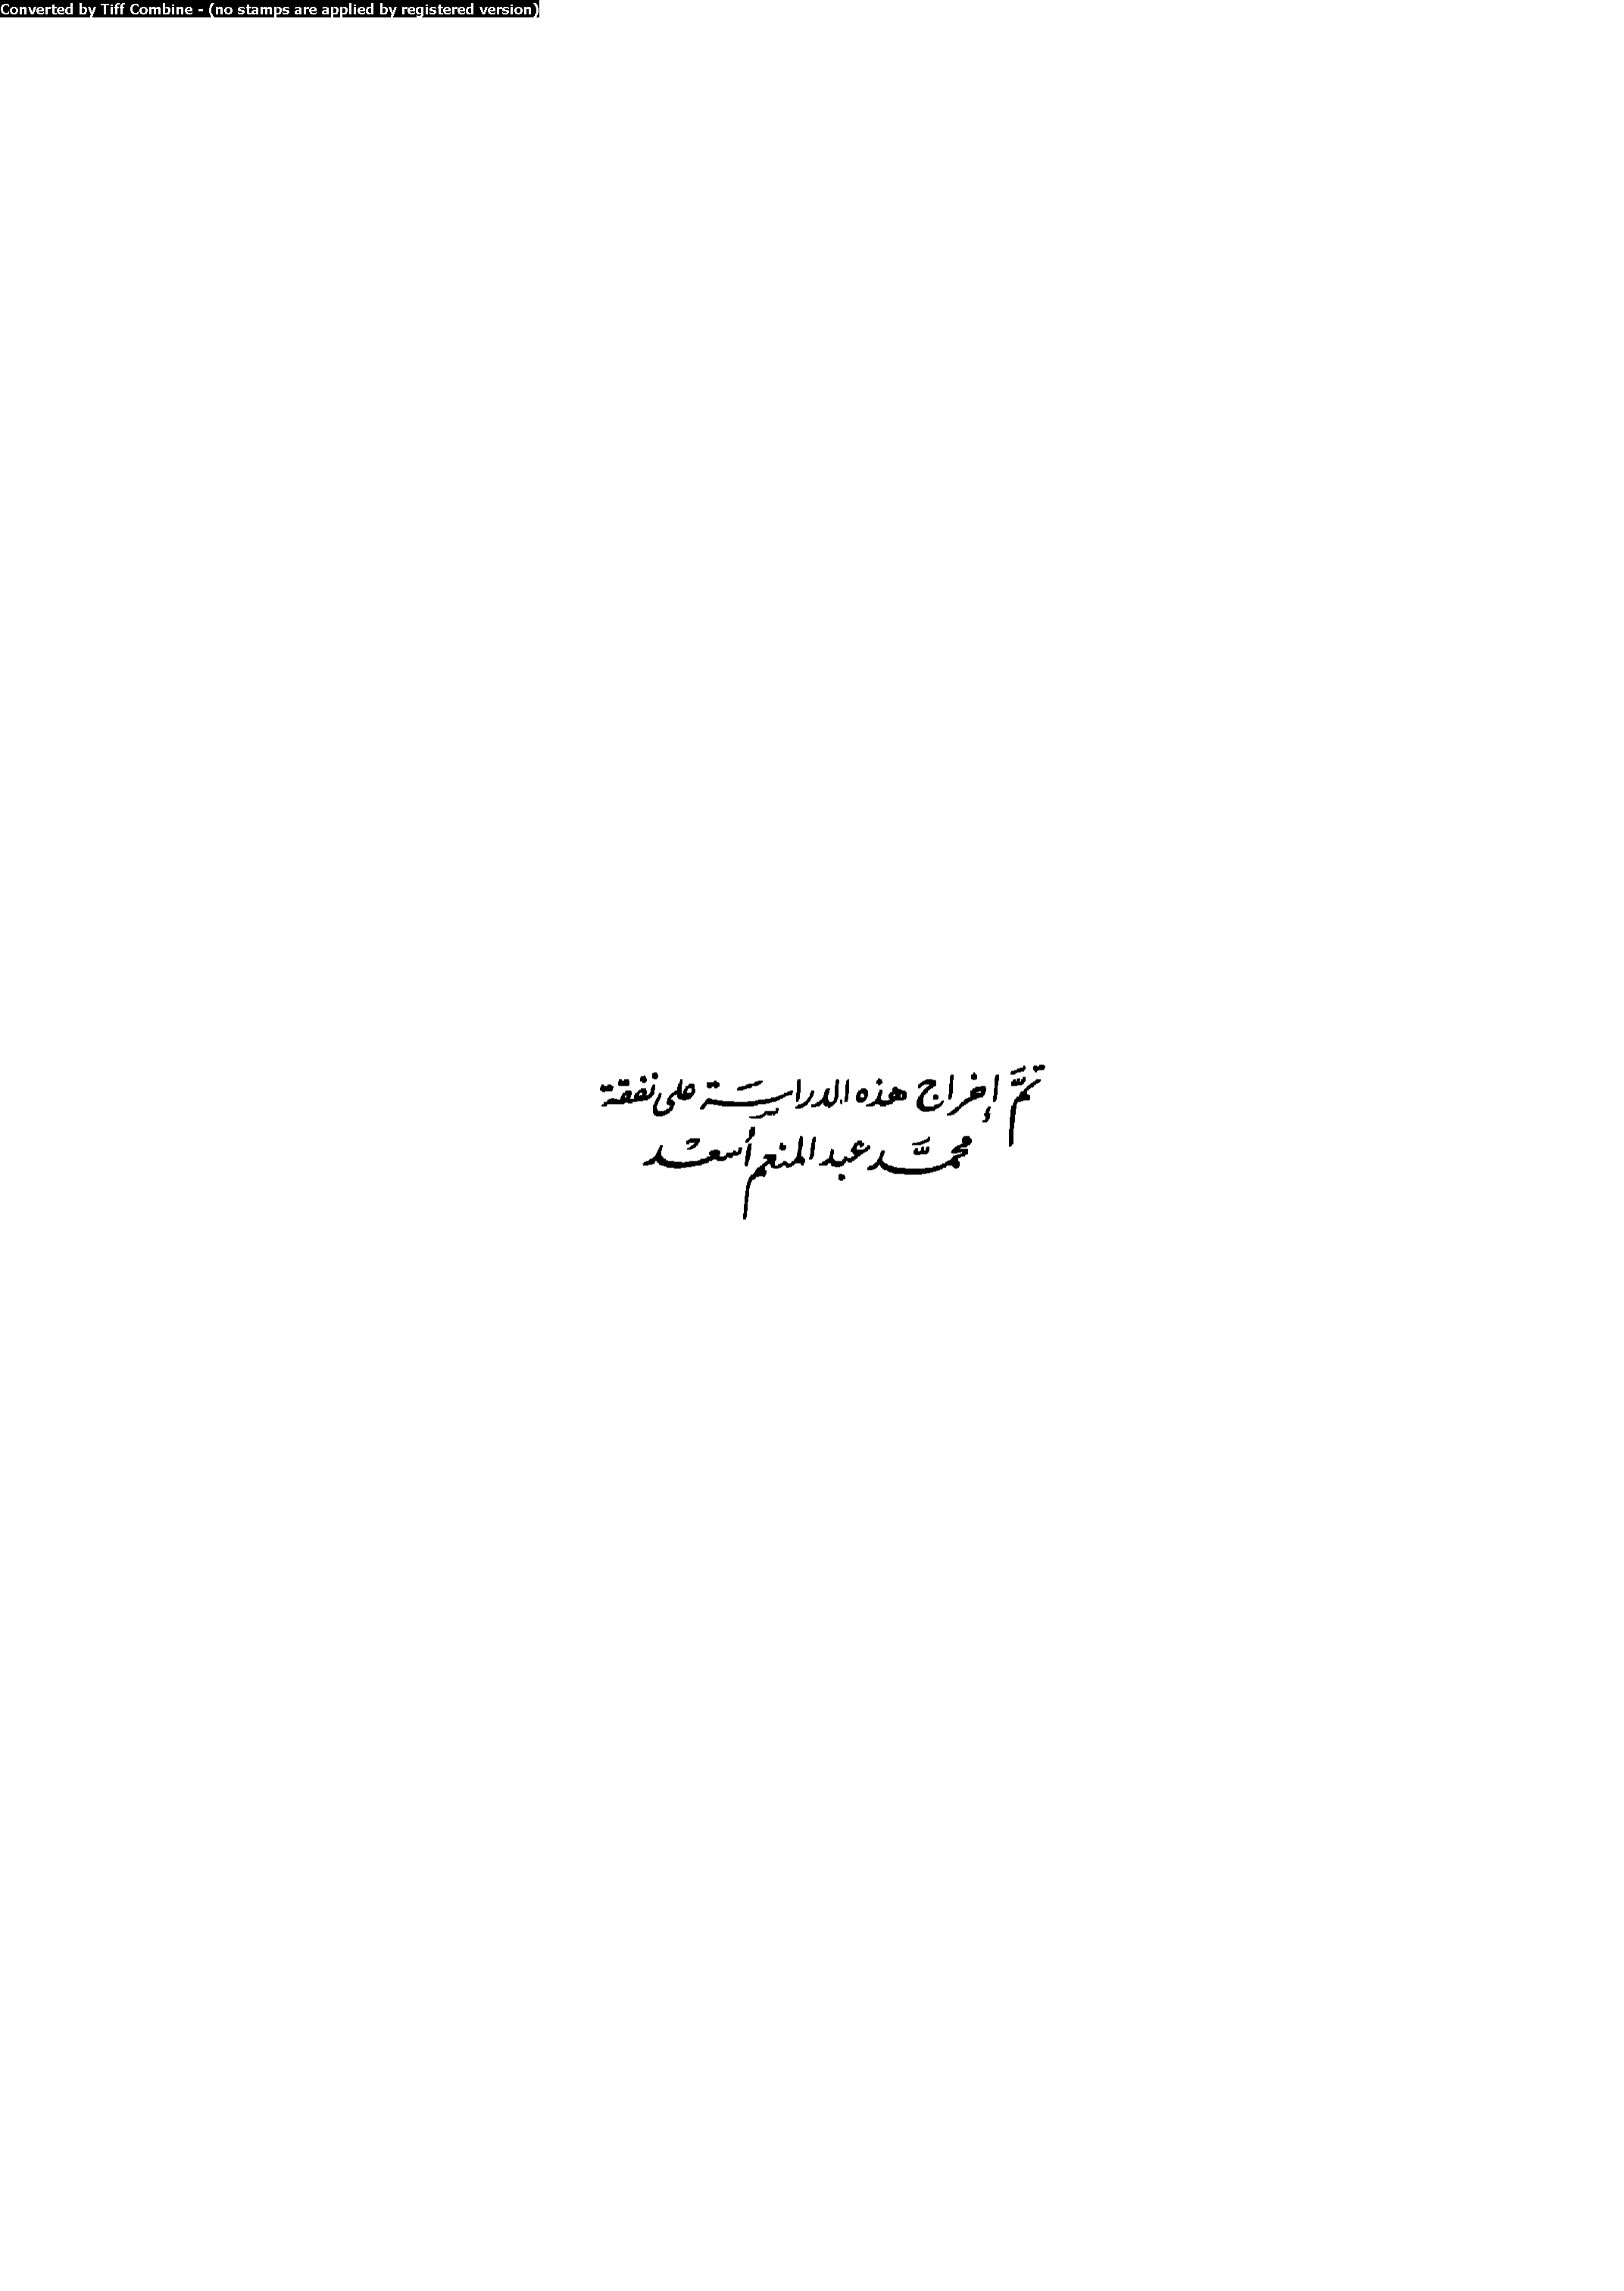 Converted by Tiff Combine - (no stamps are applied by registered version)
تمَّ إخراج هذه الدراسَة على نفقة
محمَّد عبد المنعم أسعد